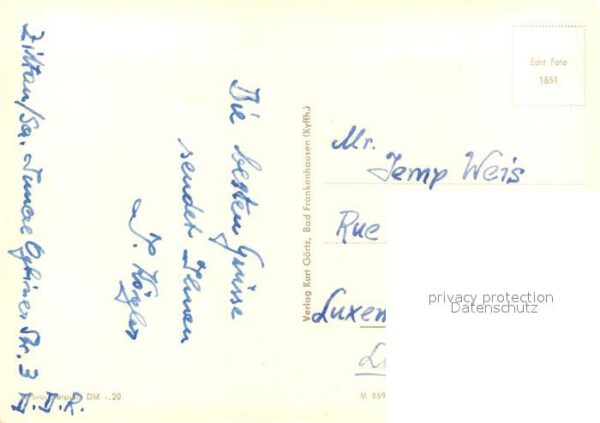 Die besten Grüsse
sendet Ihnen
Zittau/Sa.
Str. 3
D.D.R.
Verlag Kurt Görtz, Bad Frankenhausen (Kyffh.)
Echt Foto
1851
Mr.
Jemp Weis
Rue
Luxem
DM -.20
M 859
privacy protection
Datenschutz